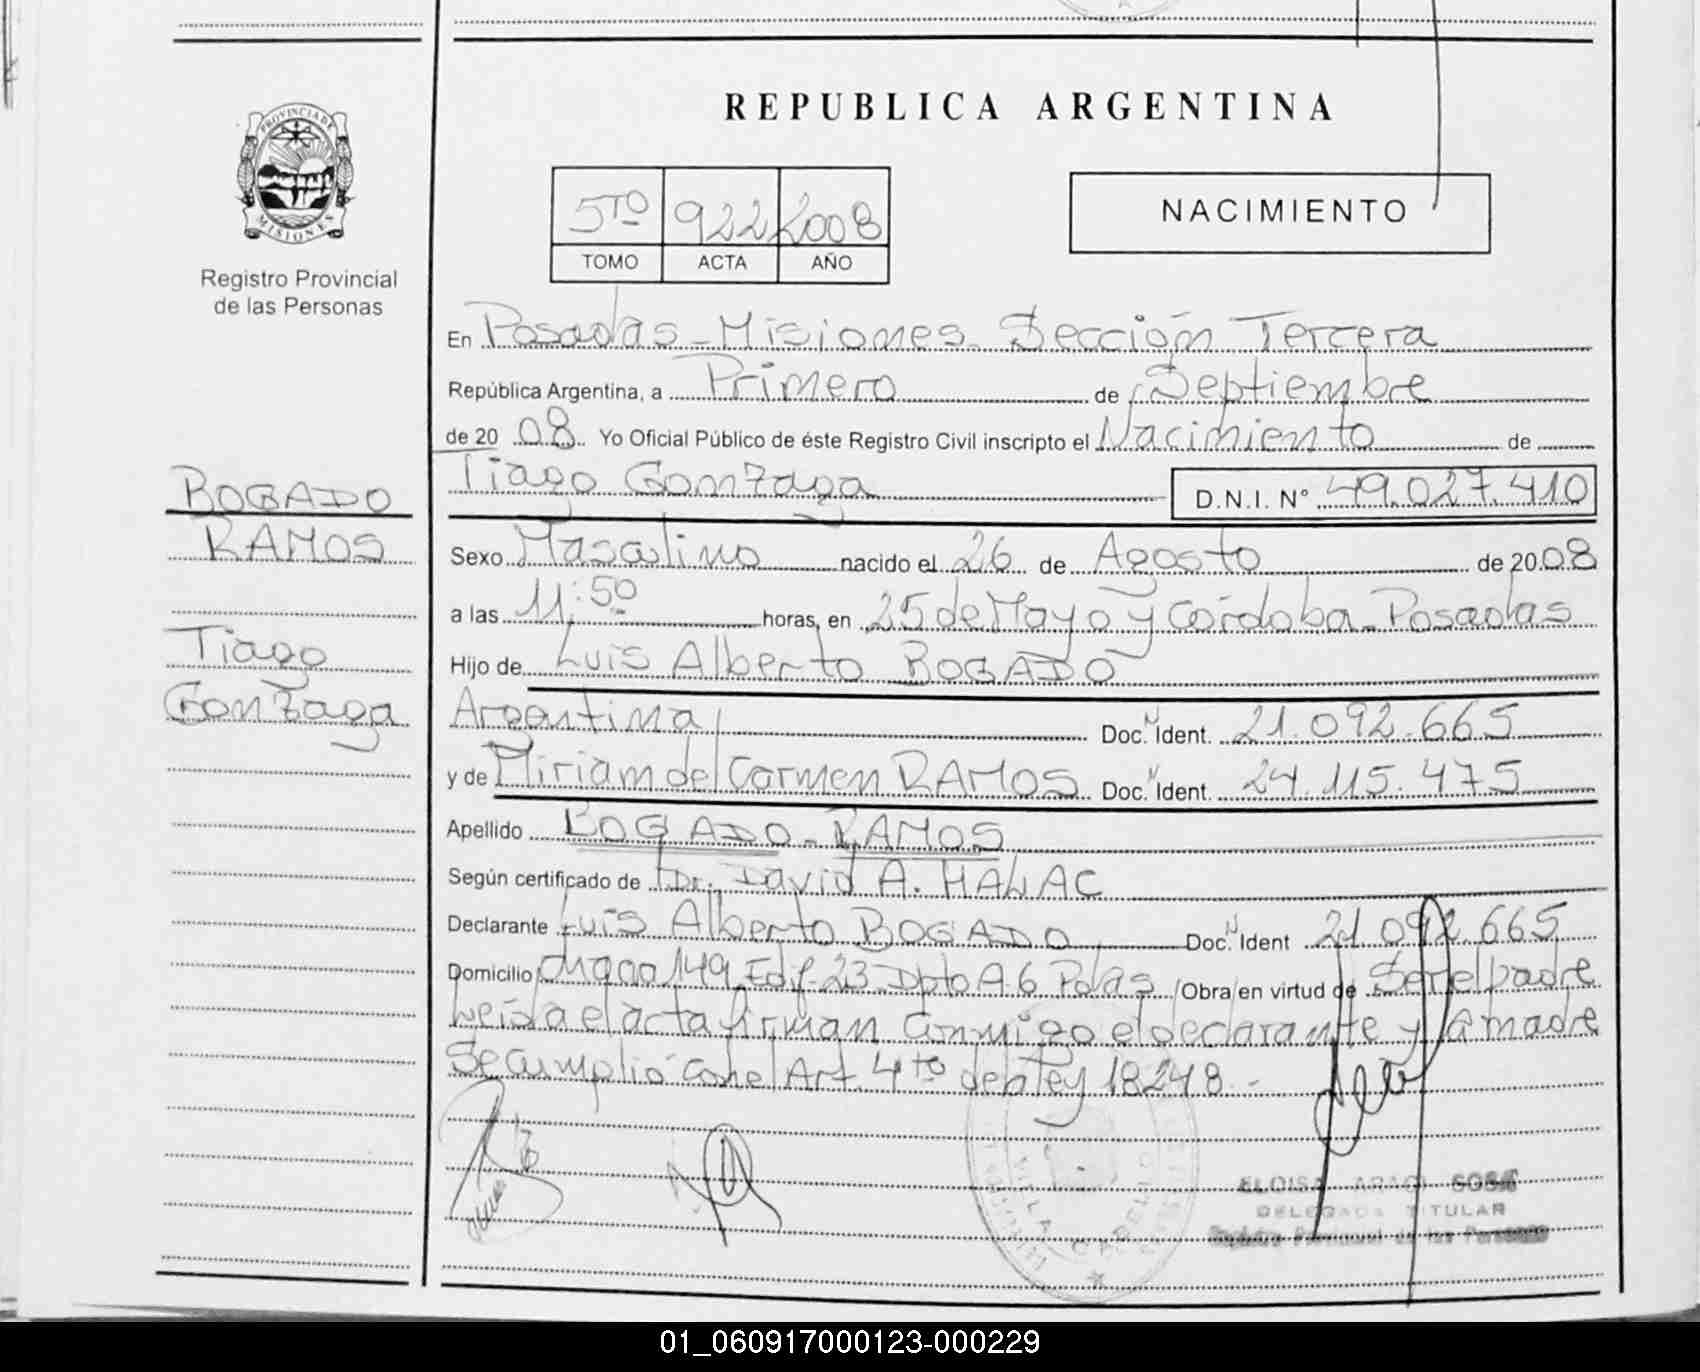 REPUBLICA ARGENTINA
PROVINCIA DE
MISIONES
Registro Provincial
de las Personas
5TO 922 2008
TOMO ACTA AÑO
NACIMIENTO
En Posadas - Misiones - Sección Tercera
República Argentina, a Primero de Septiembre
de 20 08 Yo Oficial Público de éste Registro Civil inscripto el Nacimiento de
Tiago Gonzaga D.N.I. N° 49.027.410
BOGADO
RAMOS
Tiago
Gonzaga
Sexo Masculino nacido el 26 de Agosto de 2008
a las 11:50 horas, en 25 de Mayo y Córdoba - Posadas
Hijo de Luis Alberto BOGADO
Argentina Doc. Ident. 21.092.665
y de Miriam del Carmen RAMOS Doc. Ident. 24.115.475
Apellido BOGADO - RAMOS
Según certificado de Dr. David A. HALAC
Declarante Luis Alberto BOGADO Doc. Ident 21.092.665
Domicilio Chaco 149 Edif. 23 Dpto A-6 Pdas /Obra en virtud de Ser el padre
Leída el acta firman conmigo el declarante y la madre
Se cumplió con el Art. 4to de la Ley 18248.-
VILLA CABELLO
ELOISA SOSA
DELEGADA TITULAR
Registro Provincial de las Personas
01_060917000123-000229